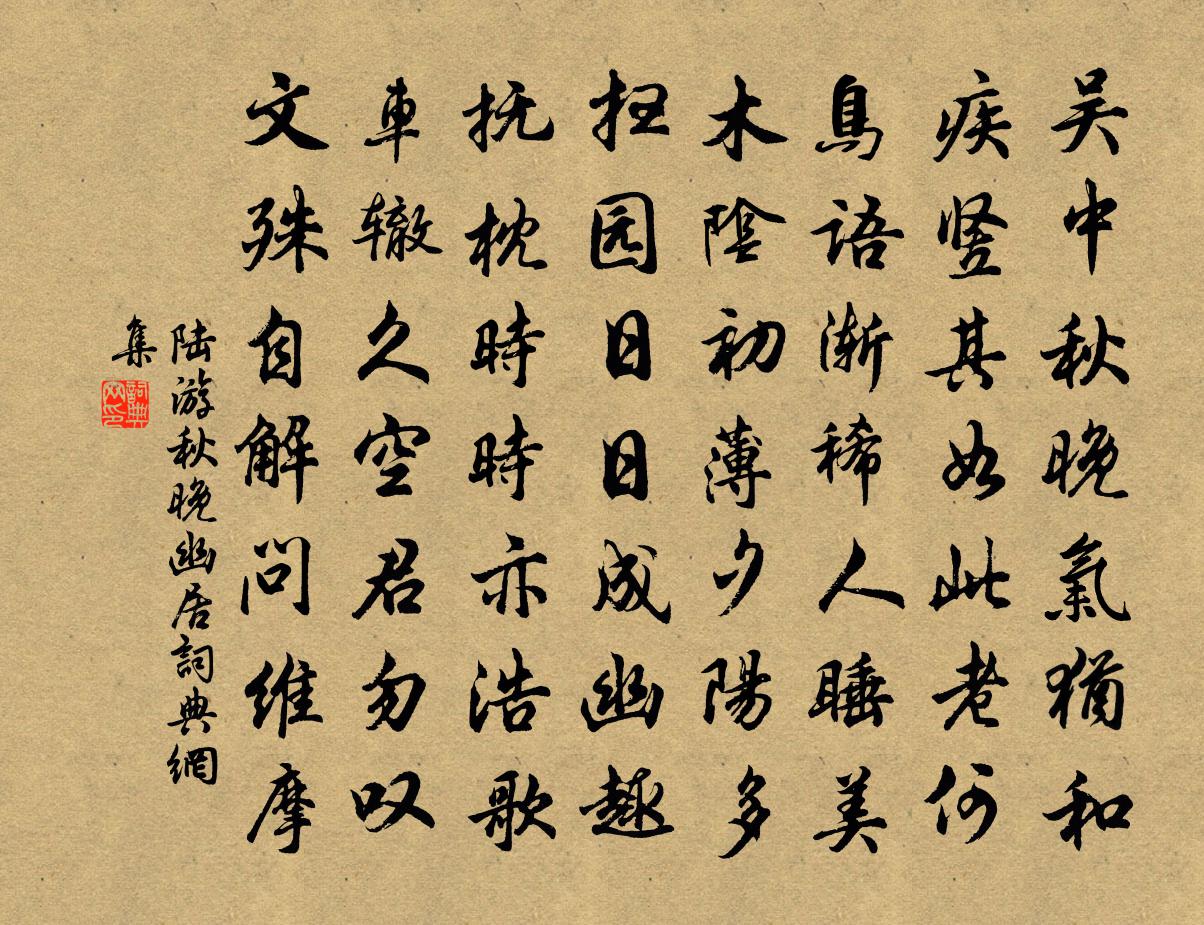 吴中秋晚氣猶和
疾竖其如此老何
鳥語渐稀人睡美
木陰初薄夕陽多
扫园日日成幽趣
抚枕時時亦浩歌
車辙久空君勿叹
文殊自解問维摩
陆游秋晚幽居詞典網
集
詞典
网印